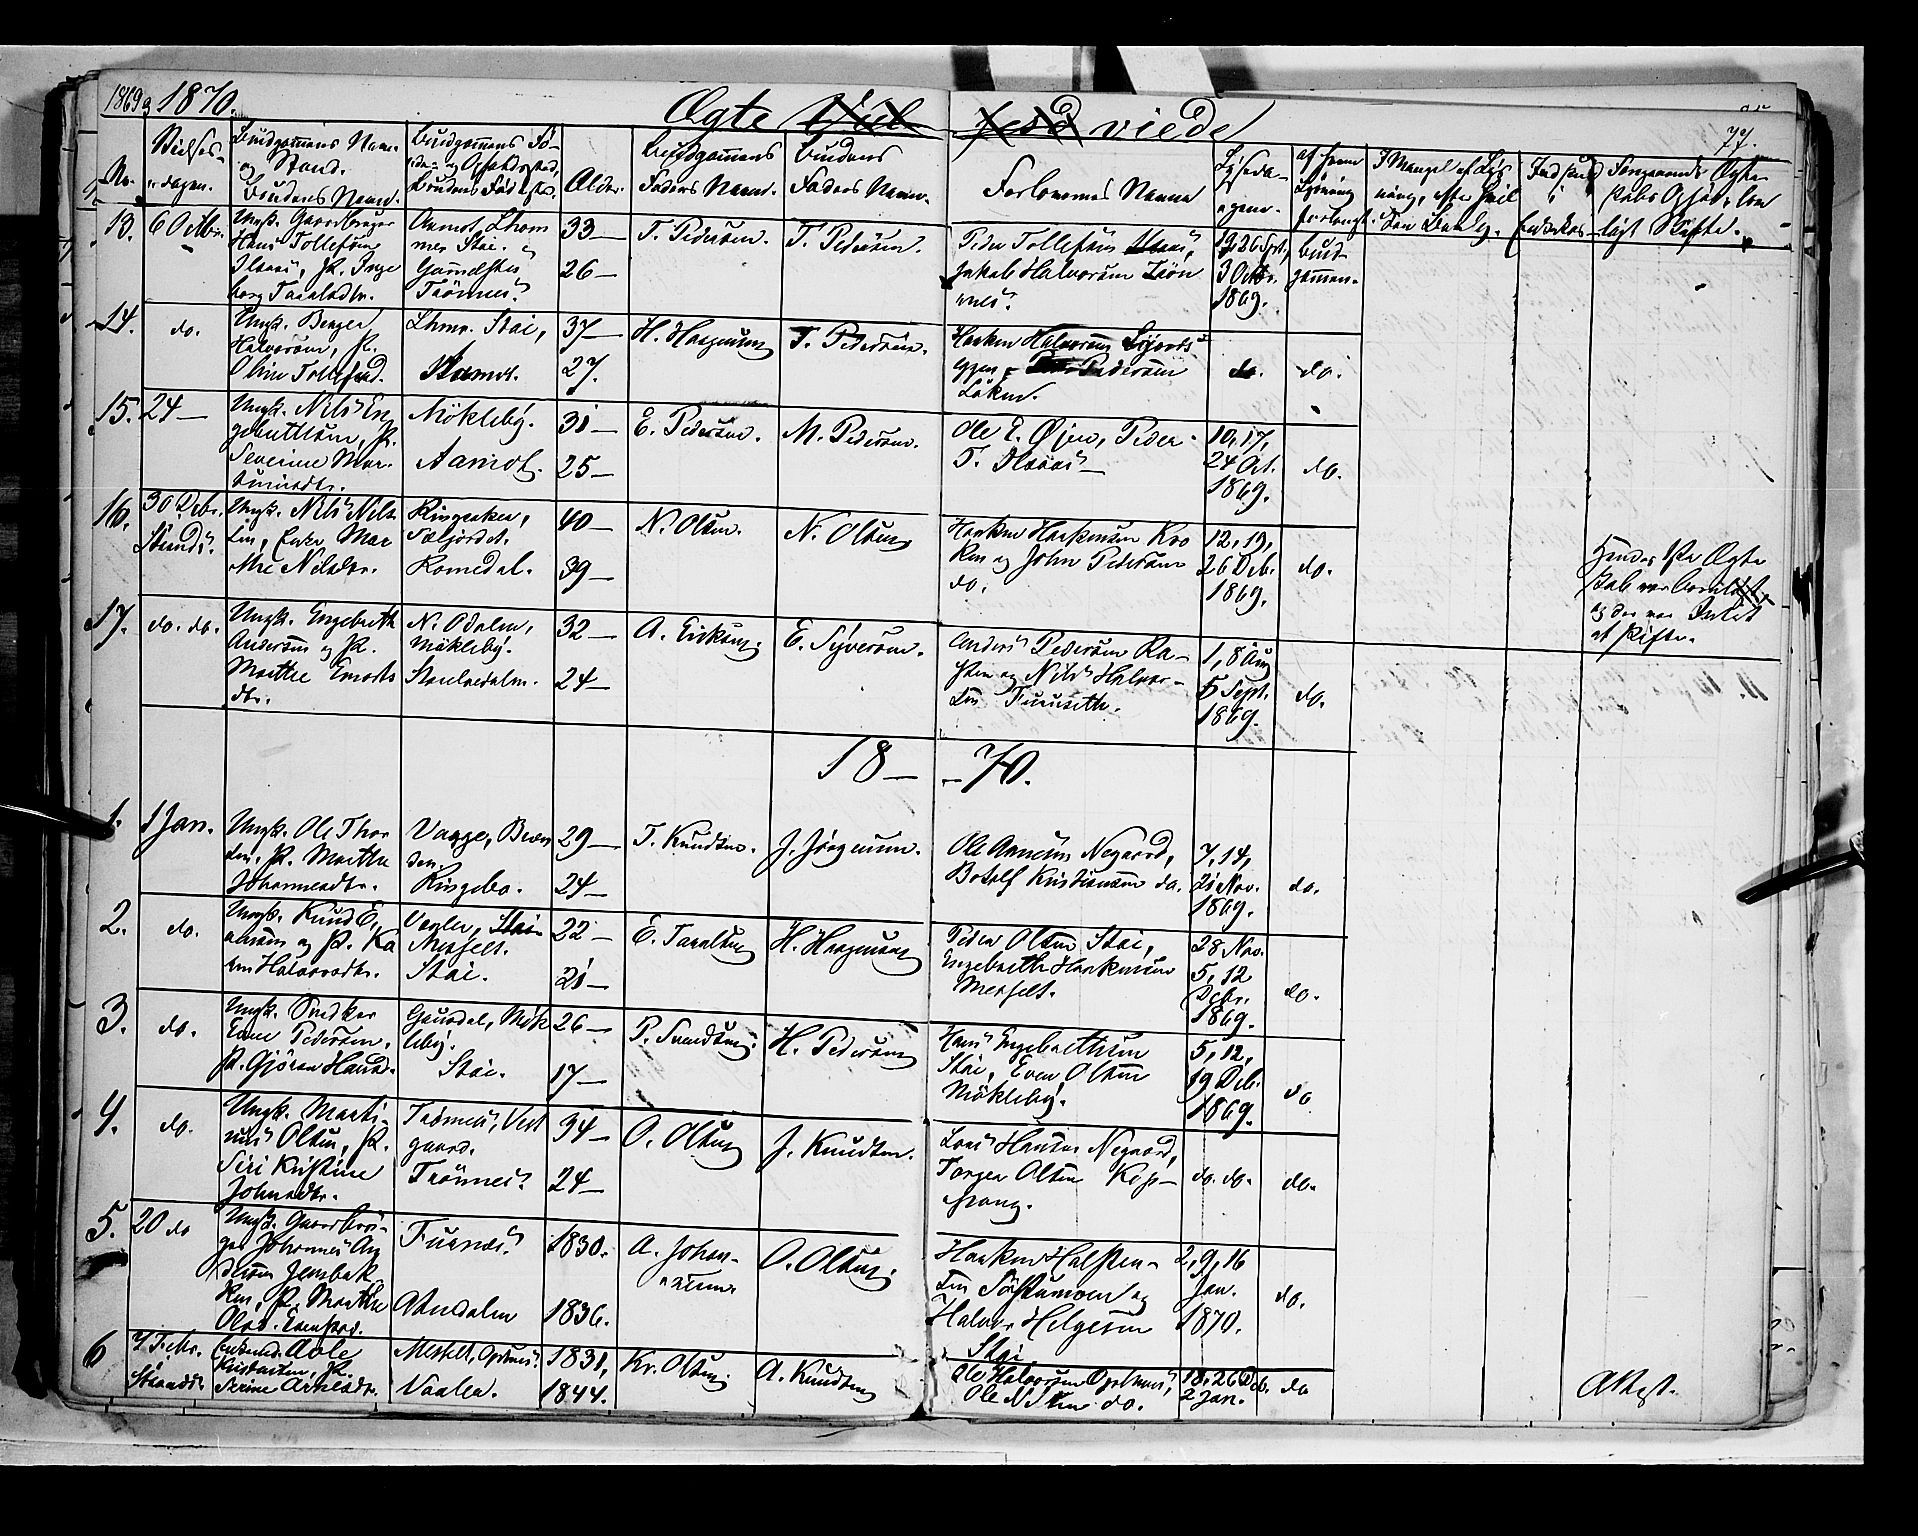 1869 og 1870.
Ægte viede
77.
No.
Vielses-
dagen.
Brudgommens Navn
og Stand.
Brudens Navn.
Brudgommens Fø-
de- og Opholdssted,
Brudens Fødested.
Alder.
Brudgommens
Faders Navn.
Brudens
Faders Navn.
Forlovernes Navne
Lyseda-
gene.
af hvem
Lysning
forlangt.
13.
6 Octbr.
Ungk. Gaardbruger
Hans Tollefsen
Ilsaas, P. Inge
borg Taraldsdtr.
Aamot, Lhom
mer Stai.
Trønnes.
33
26
T. Pedersen.
T. Pedersen.
Peder Tollefsen
Jakob Halvorsen Trøn
nes.
19, 26 Spt.,
3 Octbr.
1869.
Brud
gommen.
14.
do.
Ungk. Berger
Halvorsen, P.
Oline Tollefsd.
Lhmr. Stai,
Aamot.
37
27.
H. Haagensen
T. Pedersen.
Haaken Halvorsen
Pedersen
Løken.
do.
do.
15.
24
Ungk. Nils En
gebrethsen, P.
Severine Mor-
Mökleby.
Aamot.
31
25
E. Pedersen.
M. Pedersen.
Ole E. Øjen, Peder
T. Ilsaas
10, 17,
24 Oct.
1869.
do.
16.
30 Debr.
Ungk. Nils Nils
sen, Enke Mar
the Nilsdtr.
Ringsaker,
Romedal.
40
39
N. Olsen.
N. Olsen
Haaken Haakensen Kro
ken og John Pedersen
do.
12, 19,
26 Deb.
1869.
do.
Hendes 1ste Ægte
skab var barnløst,
og der var Intet
at skifte.
17.
do. do.
Ungk. Engebreth
Andersen og P.
Marthe Emberts
dtr.
N. Odalen,
Mökleby.
Storelvedalen.
32
24
A. Eriksen.
E. Syversen.
Anders Pedersen Ra-
sten og Nils Halvor-
sen Furuseth.
1, 8 Aug
5 Sept.
1869.
do.
18 — 70.
1.
1 Jan.
Ungk. Ole Thor
sen, P. Marthe
Johannesdtr.
Vaage,
Ringebo.
29
24
T. Knudsen.
J. Jørgensen.
Ole Arnesen Negaard,
Botolf Kristiansen do.
7, 14,
21 Nov.
1869.
do.
2.
do.
Ungk. Knud E.
og P. Ka
ren Halvorsdtr.
Messelt.
Stai.
22
21
E. Taraldsen
H. Haagensen
Peder Olsen Stai,
Engebreth Haakensen
Messelt.
28 Nov.
5, 12
Debr.
1869.
do.
3.
do.
Ungk. Snedker
Even Pedersen.
P. Gjøran Hansd.
Gausdal, Mök
leby.
Stai.
26
17
P. Svendsen.
H. Pedersen
Hans Engebrethsen
Stai, Even Olsen
Mökleby.
5, 12,
19 Deb.
1869.
do
4.
do.
Ungk. Marti-
nus Olsen, P.
Siri Kristine
Johnsdtr.
Trønnes, Vest
gaard.
Trønnes.
34
24
O. Olsen
J. Knudsen.
Lars Hansen Negaard,
Torger Olsen Kop-
pang.
do. do.
do.
5.
20 do
Ungk. Gaardbru-
ger Johannes An
dersen Jensbak
ken, P. Marthe
Olsd. Evenstad.
Furnes.
Atnedalen
1830.
1836.
A. Johan-
nesen.
O. Olsen.
Haaken Halsten-
sen Søstumoen og
Halvor Helgesen
Stai
2, 9, 16
Jan.
1870.
do.
6
4 Febr.
Enkemd. Atle
Kristensen, P.
Serine Arnesdtr.
Messelt, Opthus.
Vaaler.
1831,
1844.
Kr. Olsen.
A. Knudsen
Ole Halvorsen Opthus,
Ole N. do.
18, 26 Deb.
2 Jan.
do
Attest.